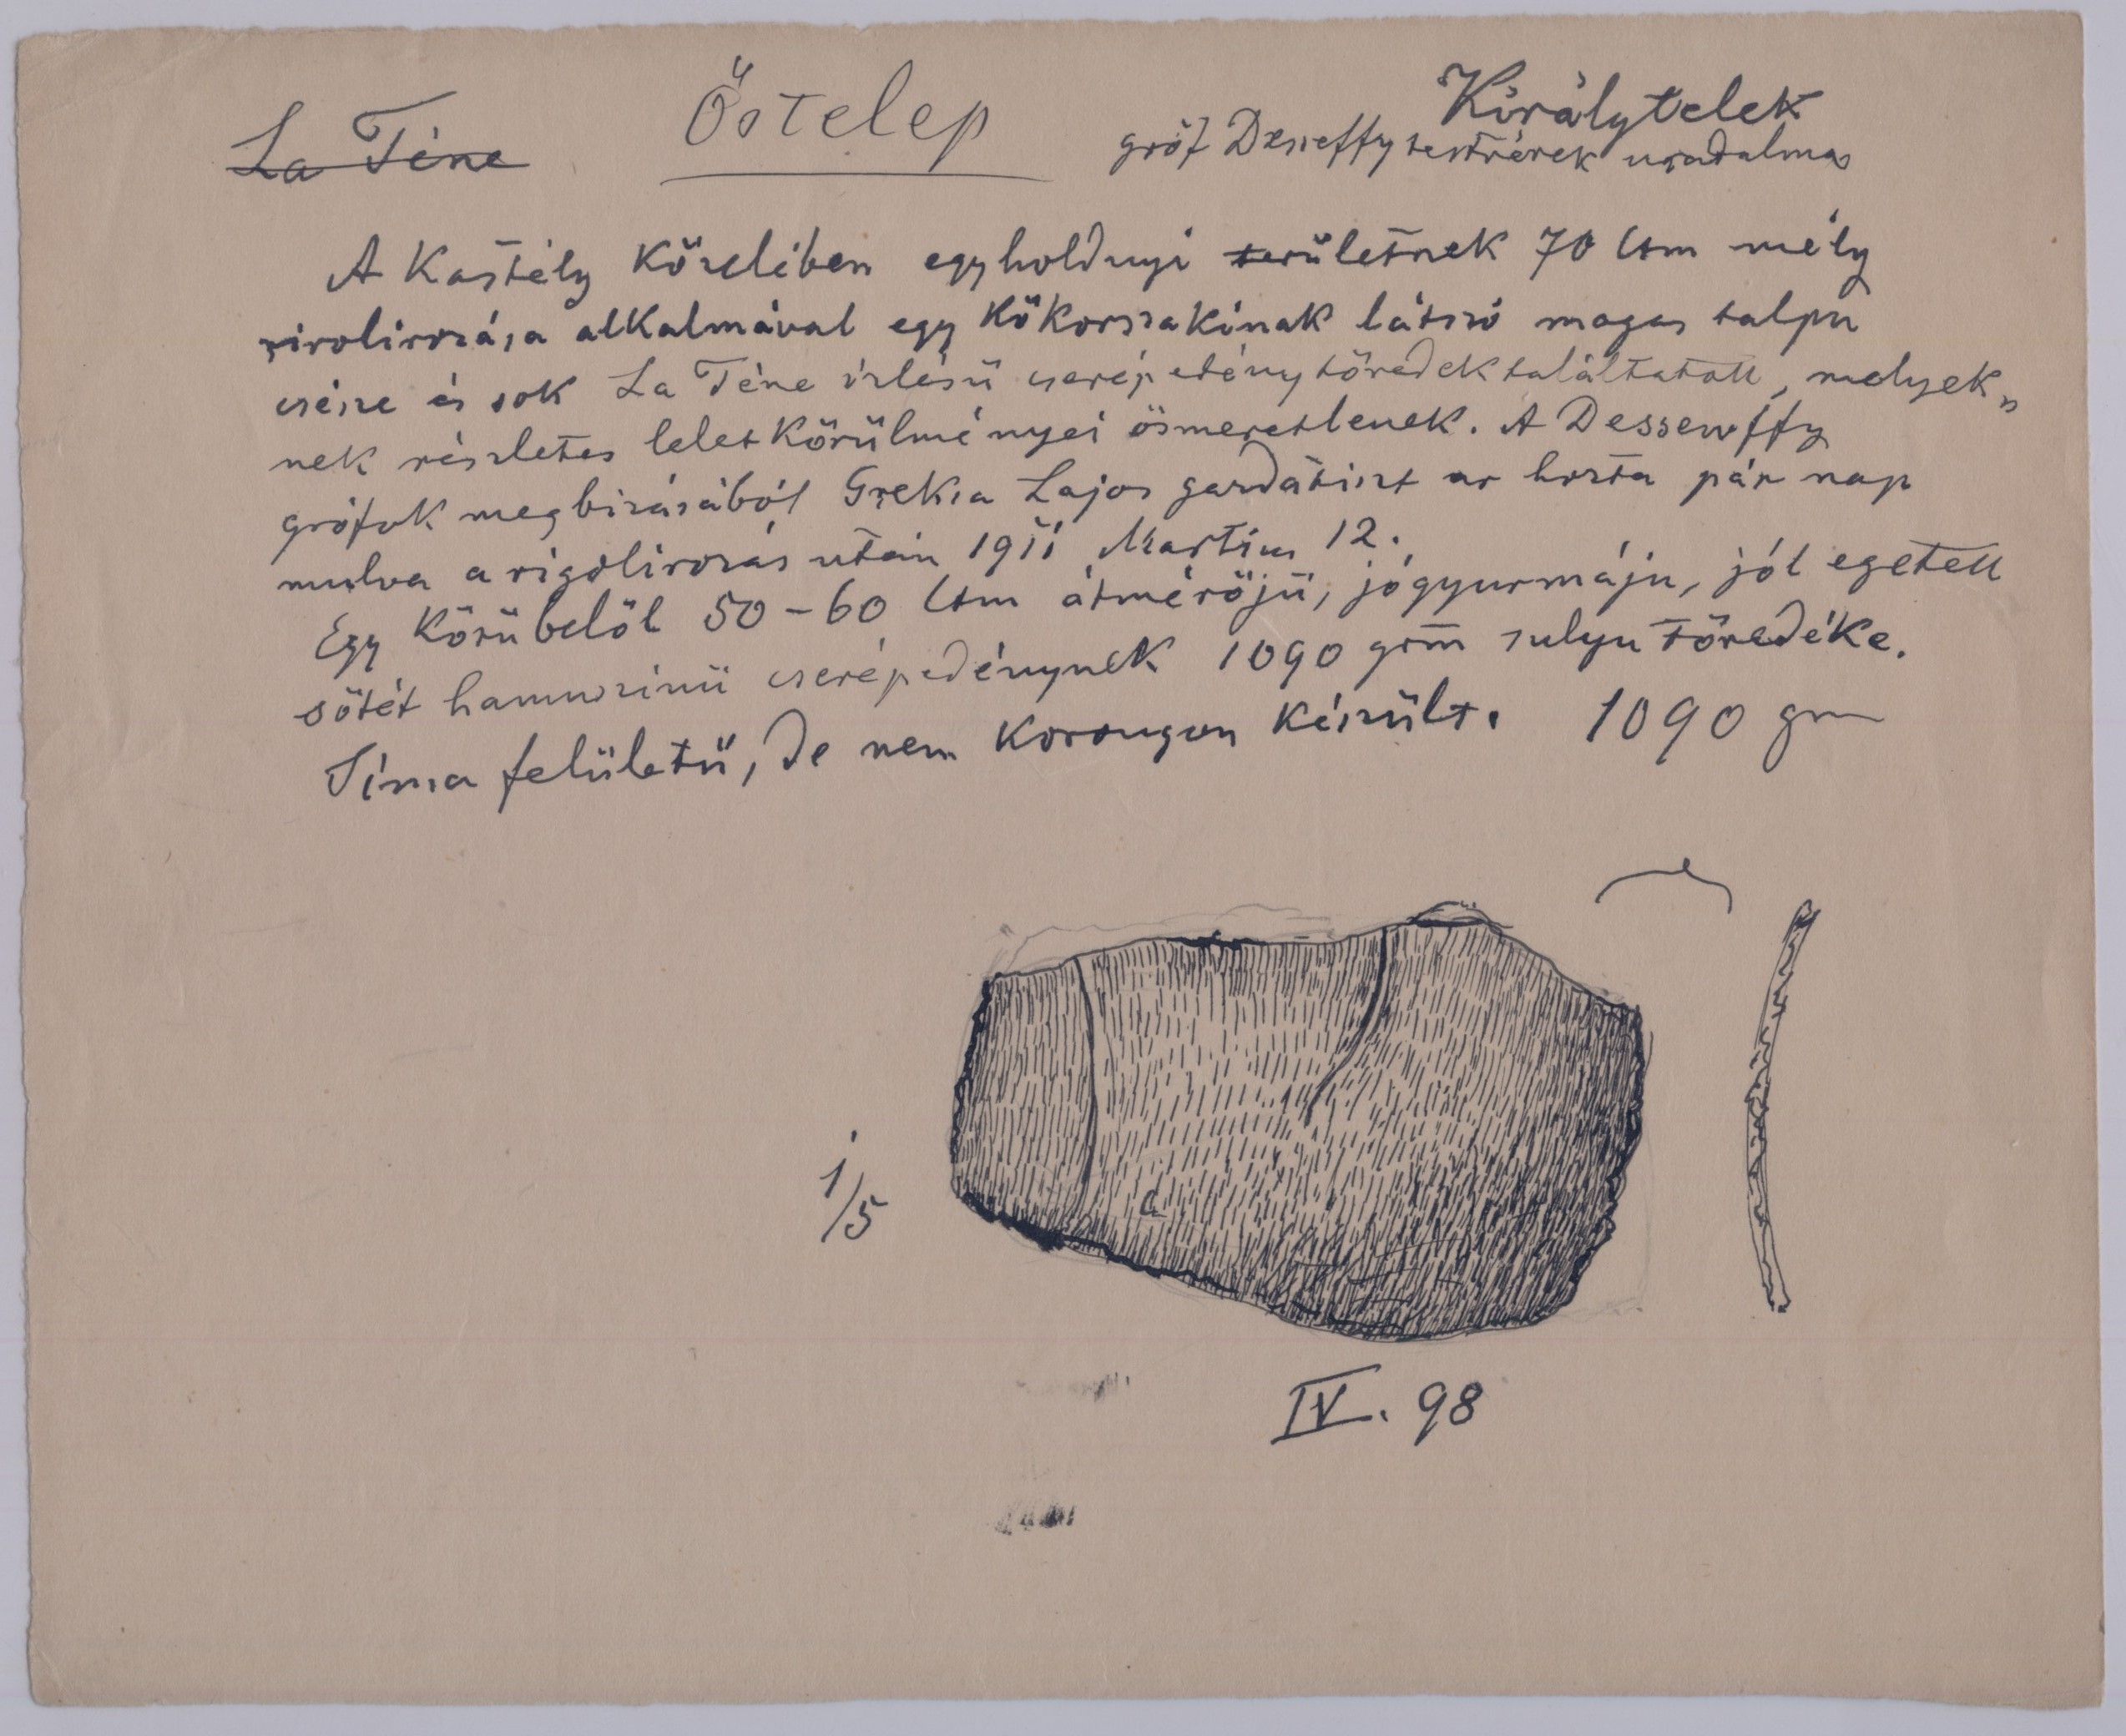 La Téne
Őstelep
Királytelek
gróf Desseffy testvérek uradalma
A Kastély közelében egy holdnyi területnek 70 Ctm mély
rirolirozása alkalmával egy kőkorszakinak látszó magas talpu
csésze és sok La Téne izlésü cserépedény töredék találtatott, melyek„
nek részletes lelet körülményei ösmeretlenek. A Dessewffy
grófok megbizásából Lajos gazdatiszt ur hozta pár nap
mulva a rigolirozás után 1911 Martius 12.
Egy körübelöl 50-60 Ctm átmérőjü, jógyurmáju, jól egetett
sötét hamuszinü cserépedénynek 1090 grm sulyu töredéke.
Sima felületü, de nem korongon készült. 1090 gm
1/5
IV. 98